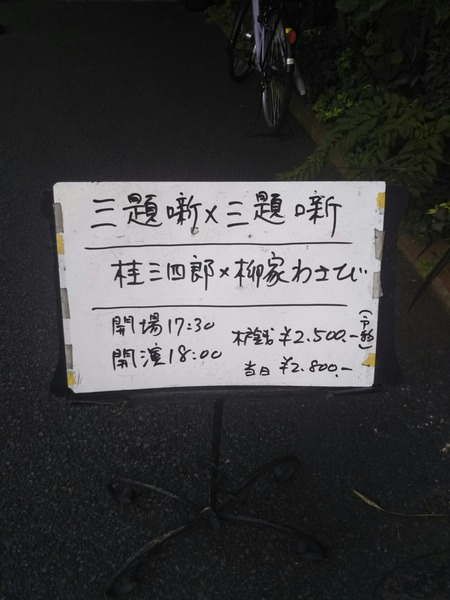 三題噺×三題噺
桂三四郎×柳家わさび
開場17:30
開演18:00
木戸銭¥2,500.-(予約)
当日¥2.800.-